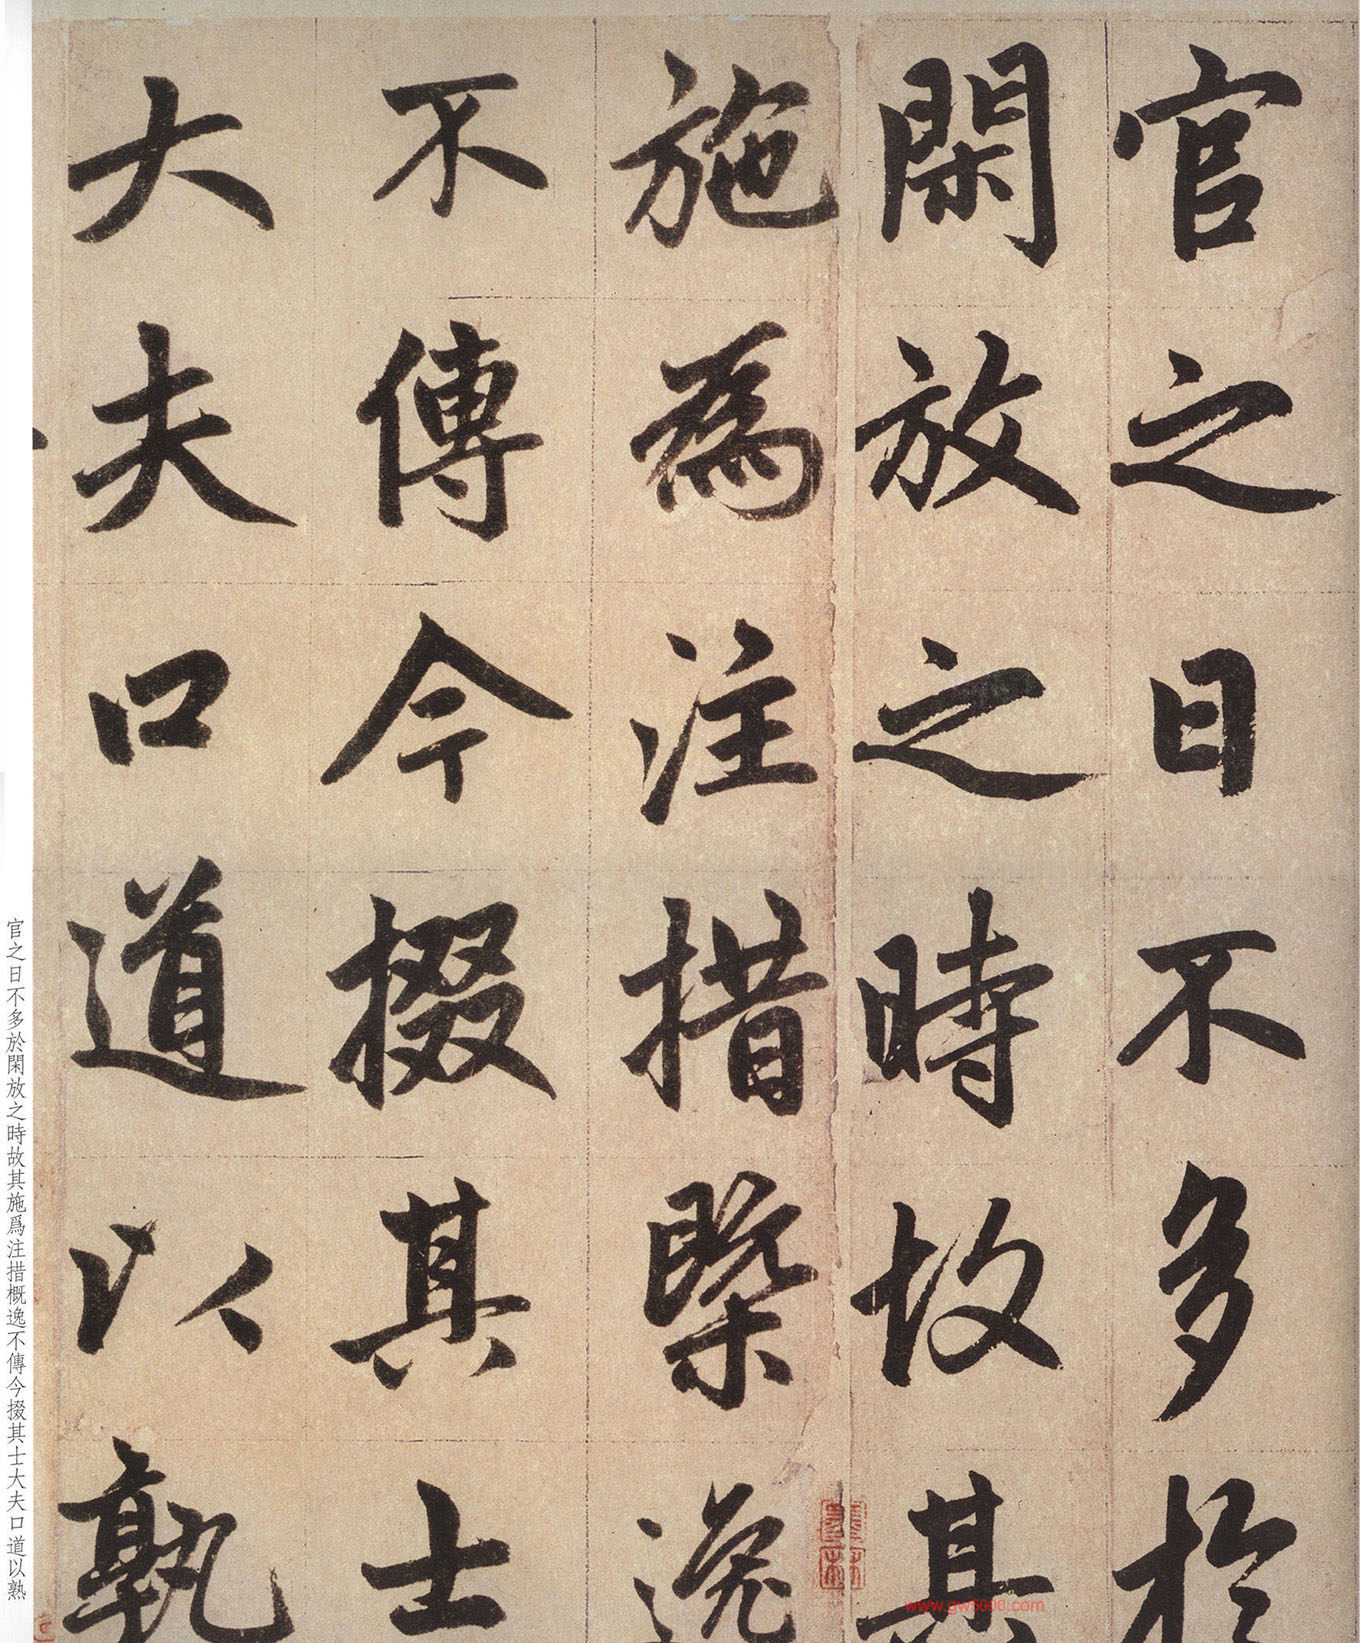 官之日不多於
閑放之時故其
施為注措槩逸
不傳今掇其士
大夫口道以孰
官之日不多於閑放之時故其施爲注措概逸不傳今掇其士大夫口道以熟
www.gw5000.com